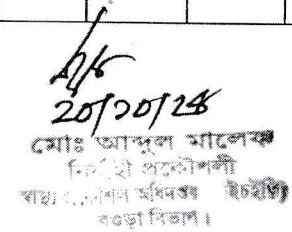 ২০/১০/২৪
মোঃ আব্দুল মালেক
নির্বাহী প্রকৌশলী
স্বাস্থ্য প্রকৌশল অধিদপ্তর (এইচইডি)
বগুড়া বিভাগ।